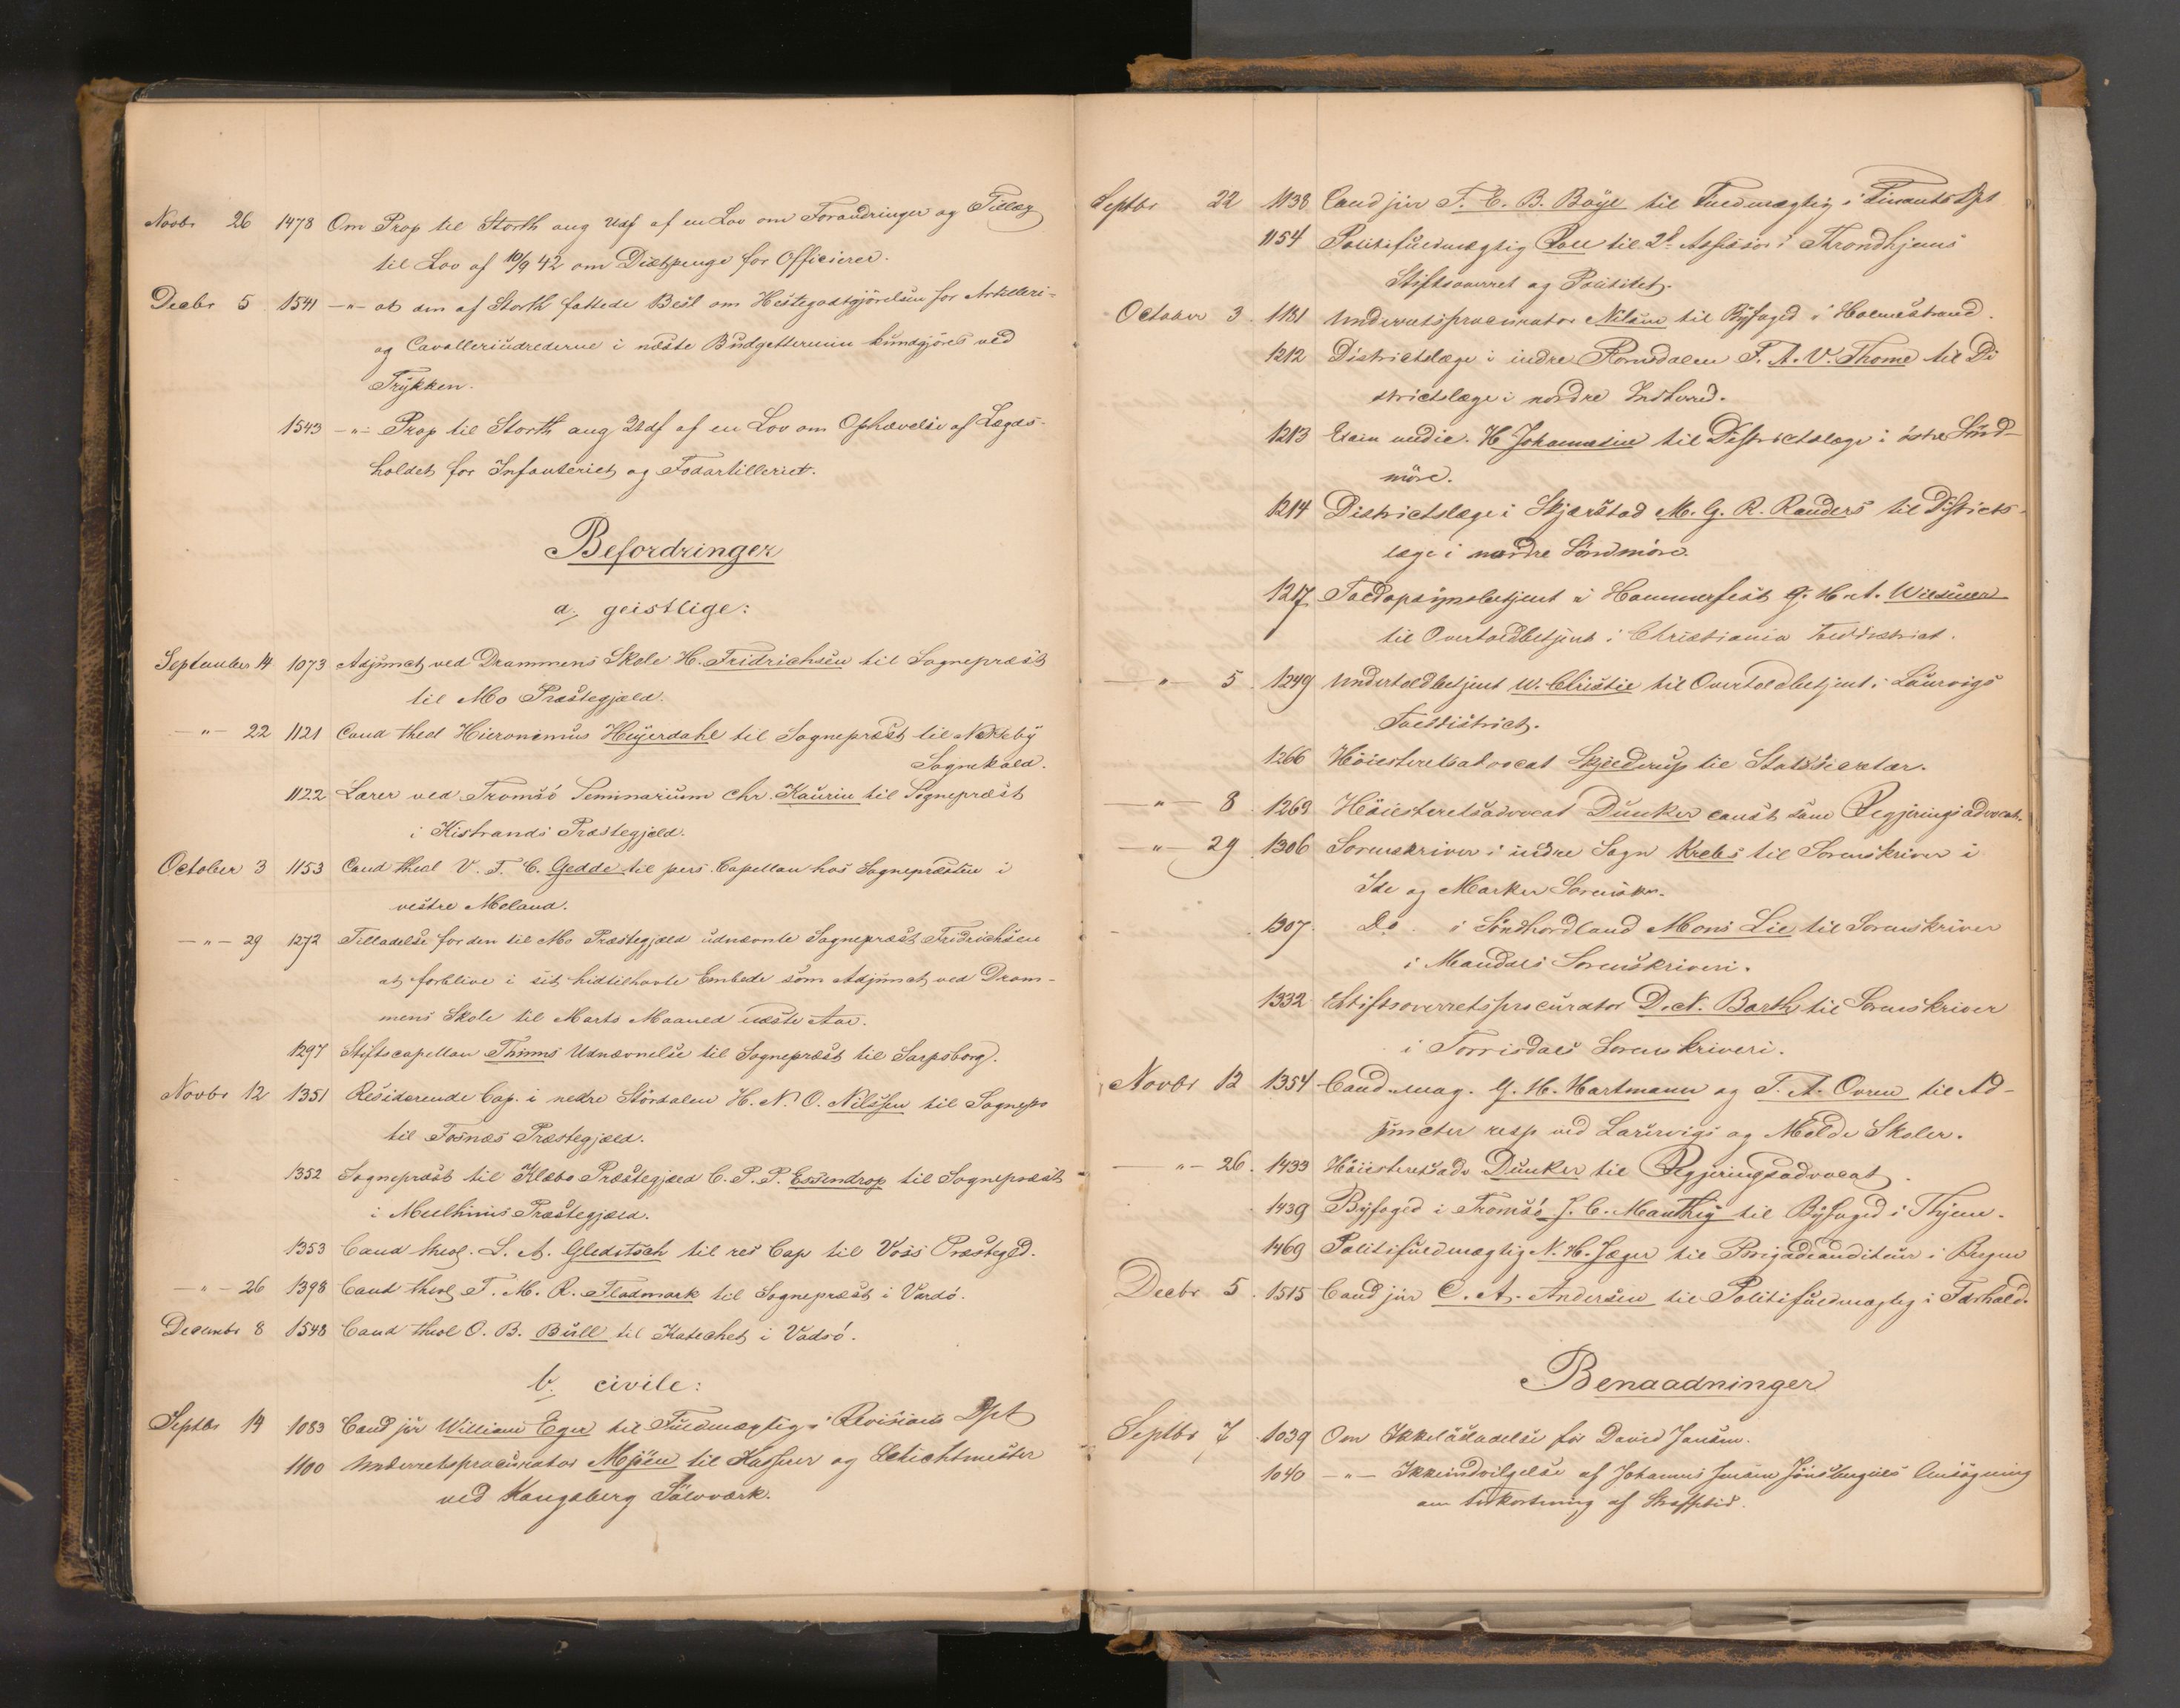 Novbr 26 1478 Om Prop til Storth ang Udf af en Lov om Forandringer og Tillæg
til Lov af 10/9 42 om Diætpenge for Officierer.
Decbr 5 1541 -"- at den af Storth fattede Besl om Hestegodtgjörelsen for Artilleri-
og Cavalleriudrederne i næste Budgettermin kundgjöres ved
Trykken.
1543 -"- Prop til Storth ang Udf af en Lov om Ophævelse af Lægds-
holdet for Infanteriet og Fodartilleriet.
Befordringer
a. geistlige:
September 14 1073 Adjunct ved Drammens Skole H. Fridrichsen til Sognepræst
til Mo Præstegjæld.
-"- 22 1121 Cand theol Hieronimus Heyerdahl til Sognepræst til Næsseby
Sognekald.
1122 Lærer ved Tromsö Seminarium Chr. Kaurin til Sognepræst
i Kistrands Præstegjæld.
October 3 1153 Cand theol V. F. C. Gedde til pers. Capellan hos Sognepræsten i
vestre Moland.
-"- 29 1272 Tilladelse for den til Mo Præstegjæld udnævnte Sognepræst Fridrichsen
at forblive i sit hidtilhavte Embede som Adjunct ved Dram-
mens Skole til Marts Maaned næste Aar.
1297 Stiftscapellan Thinns Udnævnelse til Sognepræst til Sarpsborg.
Novbr 12 1351 Residerende Cap. i nedre Stördalen H. N. O. Nilssen til Sognepr
til Fosnæs Præstegjæld.
1352 Sognepræst til Klæbo Præstegjæld C. P. P. Essendrop til Sognepræst
i Melhuus Præstegjæld.
1353 Cand theol. S. A. Gleditsch til res Cap til Voss Præstegld.
-"- 26 1398 Cand theol T. M. R. Flodmark til Sognepræst i Vardö.
Decembr 8 1548 Cand theol O. B. Bull til Katechet i Vadsö.
b. civile:
Septbr 14 1083 Cand jur William Eger til Fuldmægtig i Revisions Dpt
1100 Underretsprocurator Mjöen til Kasserer og Schichtmester
ved Kongsberg Sölvværk.
Septbr 22 1138 Cand jur F. E. B. Böye til Fuldmægtig i Finants Dpt
1154 Politifuldmægtig Poll til 2d Assessor i Throndhjems
Stiftsoverret og Politiret.
October 3. 1181 Underretsprocurator Nilsen til Byfoged i Holmestrand.
1212 Districtslæge i indre Romsdalen F. A. V. Thome til Di
strictslæge i nordre Indherred.
1213 Exam medic. H Johannesen til Districtslæge i östre Sönd-
möre.
1214 Districtslæge i Skjærstad M. G. R. Randers til Districts-
læge i nordre Söndmöre.
1217 Toldopsynsbetjent i Hammerfest G. H. A. Wilsmer
til Overtoldbetjent i Christiania Tolddistrict.
-"- 5. 1249 Undertoldbetjent W. Christie til Overtoldbetjent i Laurvigs
Tolddistrict.
1266 Höiesteretsadvocat Skjelderup til Statssecretær.
-"- 8. 1269 Höiesteretsadvocat Dunker const som Regjeringsadvocat.
-"- 29. 1306 Sorenskriver i indre Sogn Krebs til Sorenskriver i
Ide og Marker Sorenskr.
1307 Do. i Söndhordland Mons Lie til Sorenskriver
i Mandals Sorenskriveri.
1332 Stiftsoverretsprocurator D. N. Barth til Sorenskriver
i Torrisdals Sorenskriveri.
Novbr 12 1354 Cand. mag. G. H. Hartmann og T. A. Owren til Ad-
juncter resp ved Laurvigs og Molde Skoler.
-"- 26. 1433 Höiesteretsadv Dunker til Regjeringsadvocat.
1439 Byfoged i Tromsö J. C. Manthey til Byfoged i Thjem.
1469 Politifuldmægtig N. H. Jæger til Brigadeauditeur i Bergen
Decbr 5. 1515 Cand jur C. A. Andersen til Politifuldmægtig i Frhald.
Benaadninger
Septbr 7. 1039 Om Ikkelösladelse for David Jansen.
1040 -"- Ikkeindvilgelse af Johannes Jensen Ansögning
om Forkortning af Straffetid.